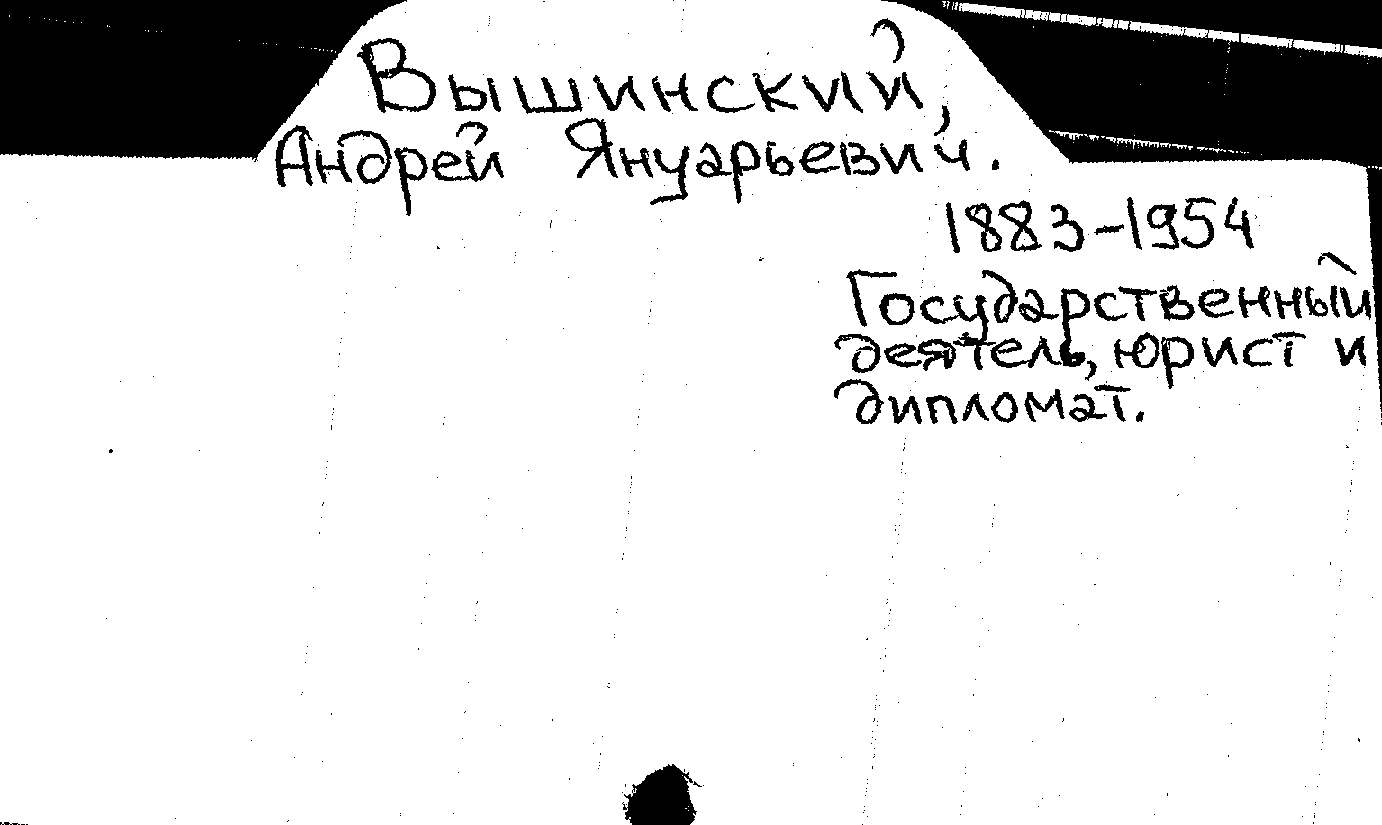 Вышинский,
Андрей Януарьевич.
1883-1954
Государственный
деятель, юрист и
дипломат.